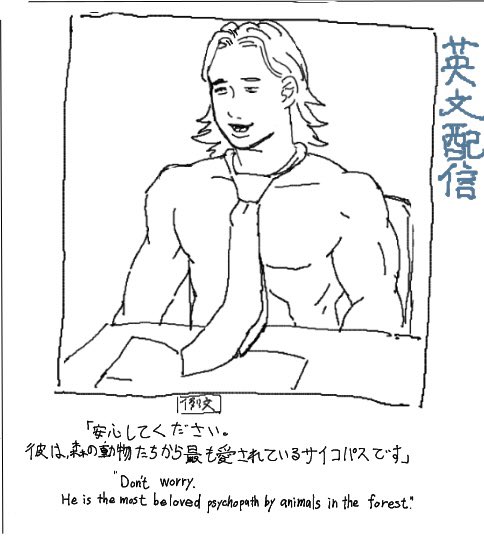 英文配信
例文
「安心してください。
彼は、森の動物たちから最も愛されているサイコパスです」
"Don't worry.
He is the most beloved psychopath by animals in the forest."